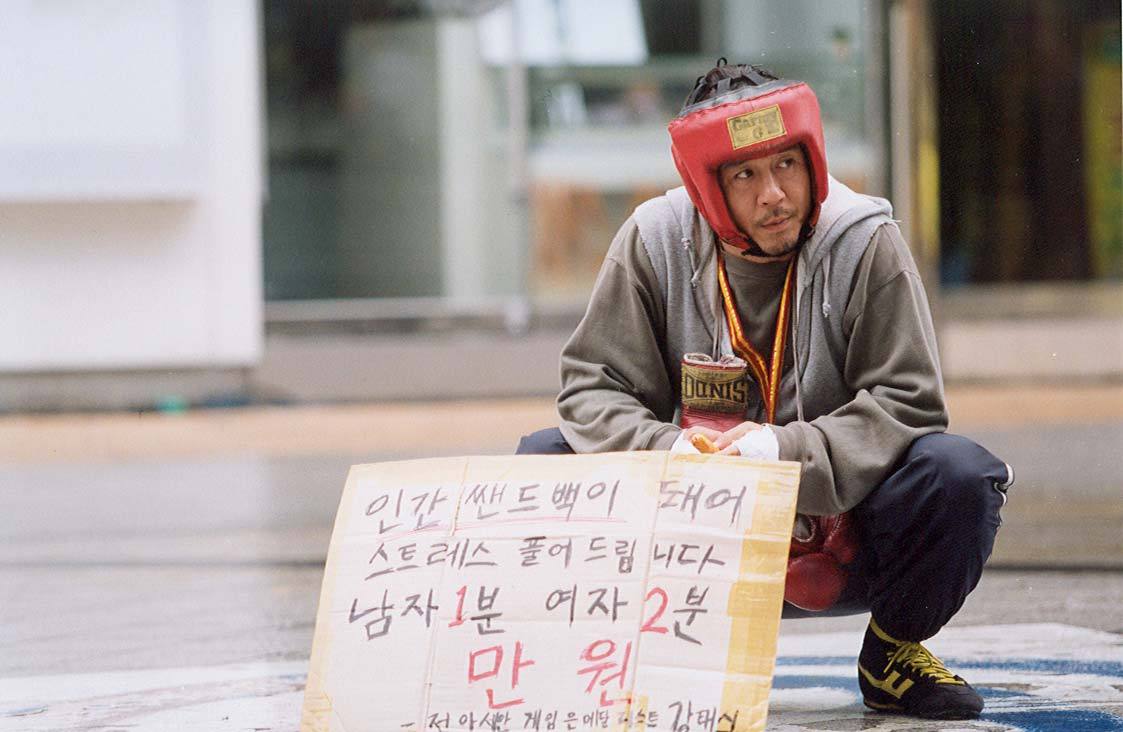 인간 쌘드백이 돼어
스트레스 풀어드립니다
남자 1분 여자 2분
만 원
- 전 아시안 게임 은메달리스트 강태식